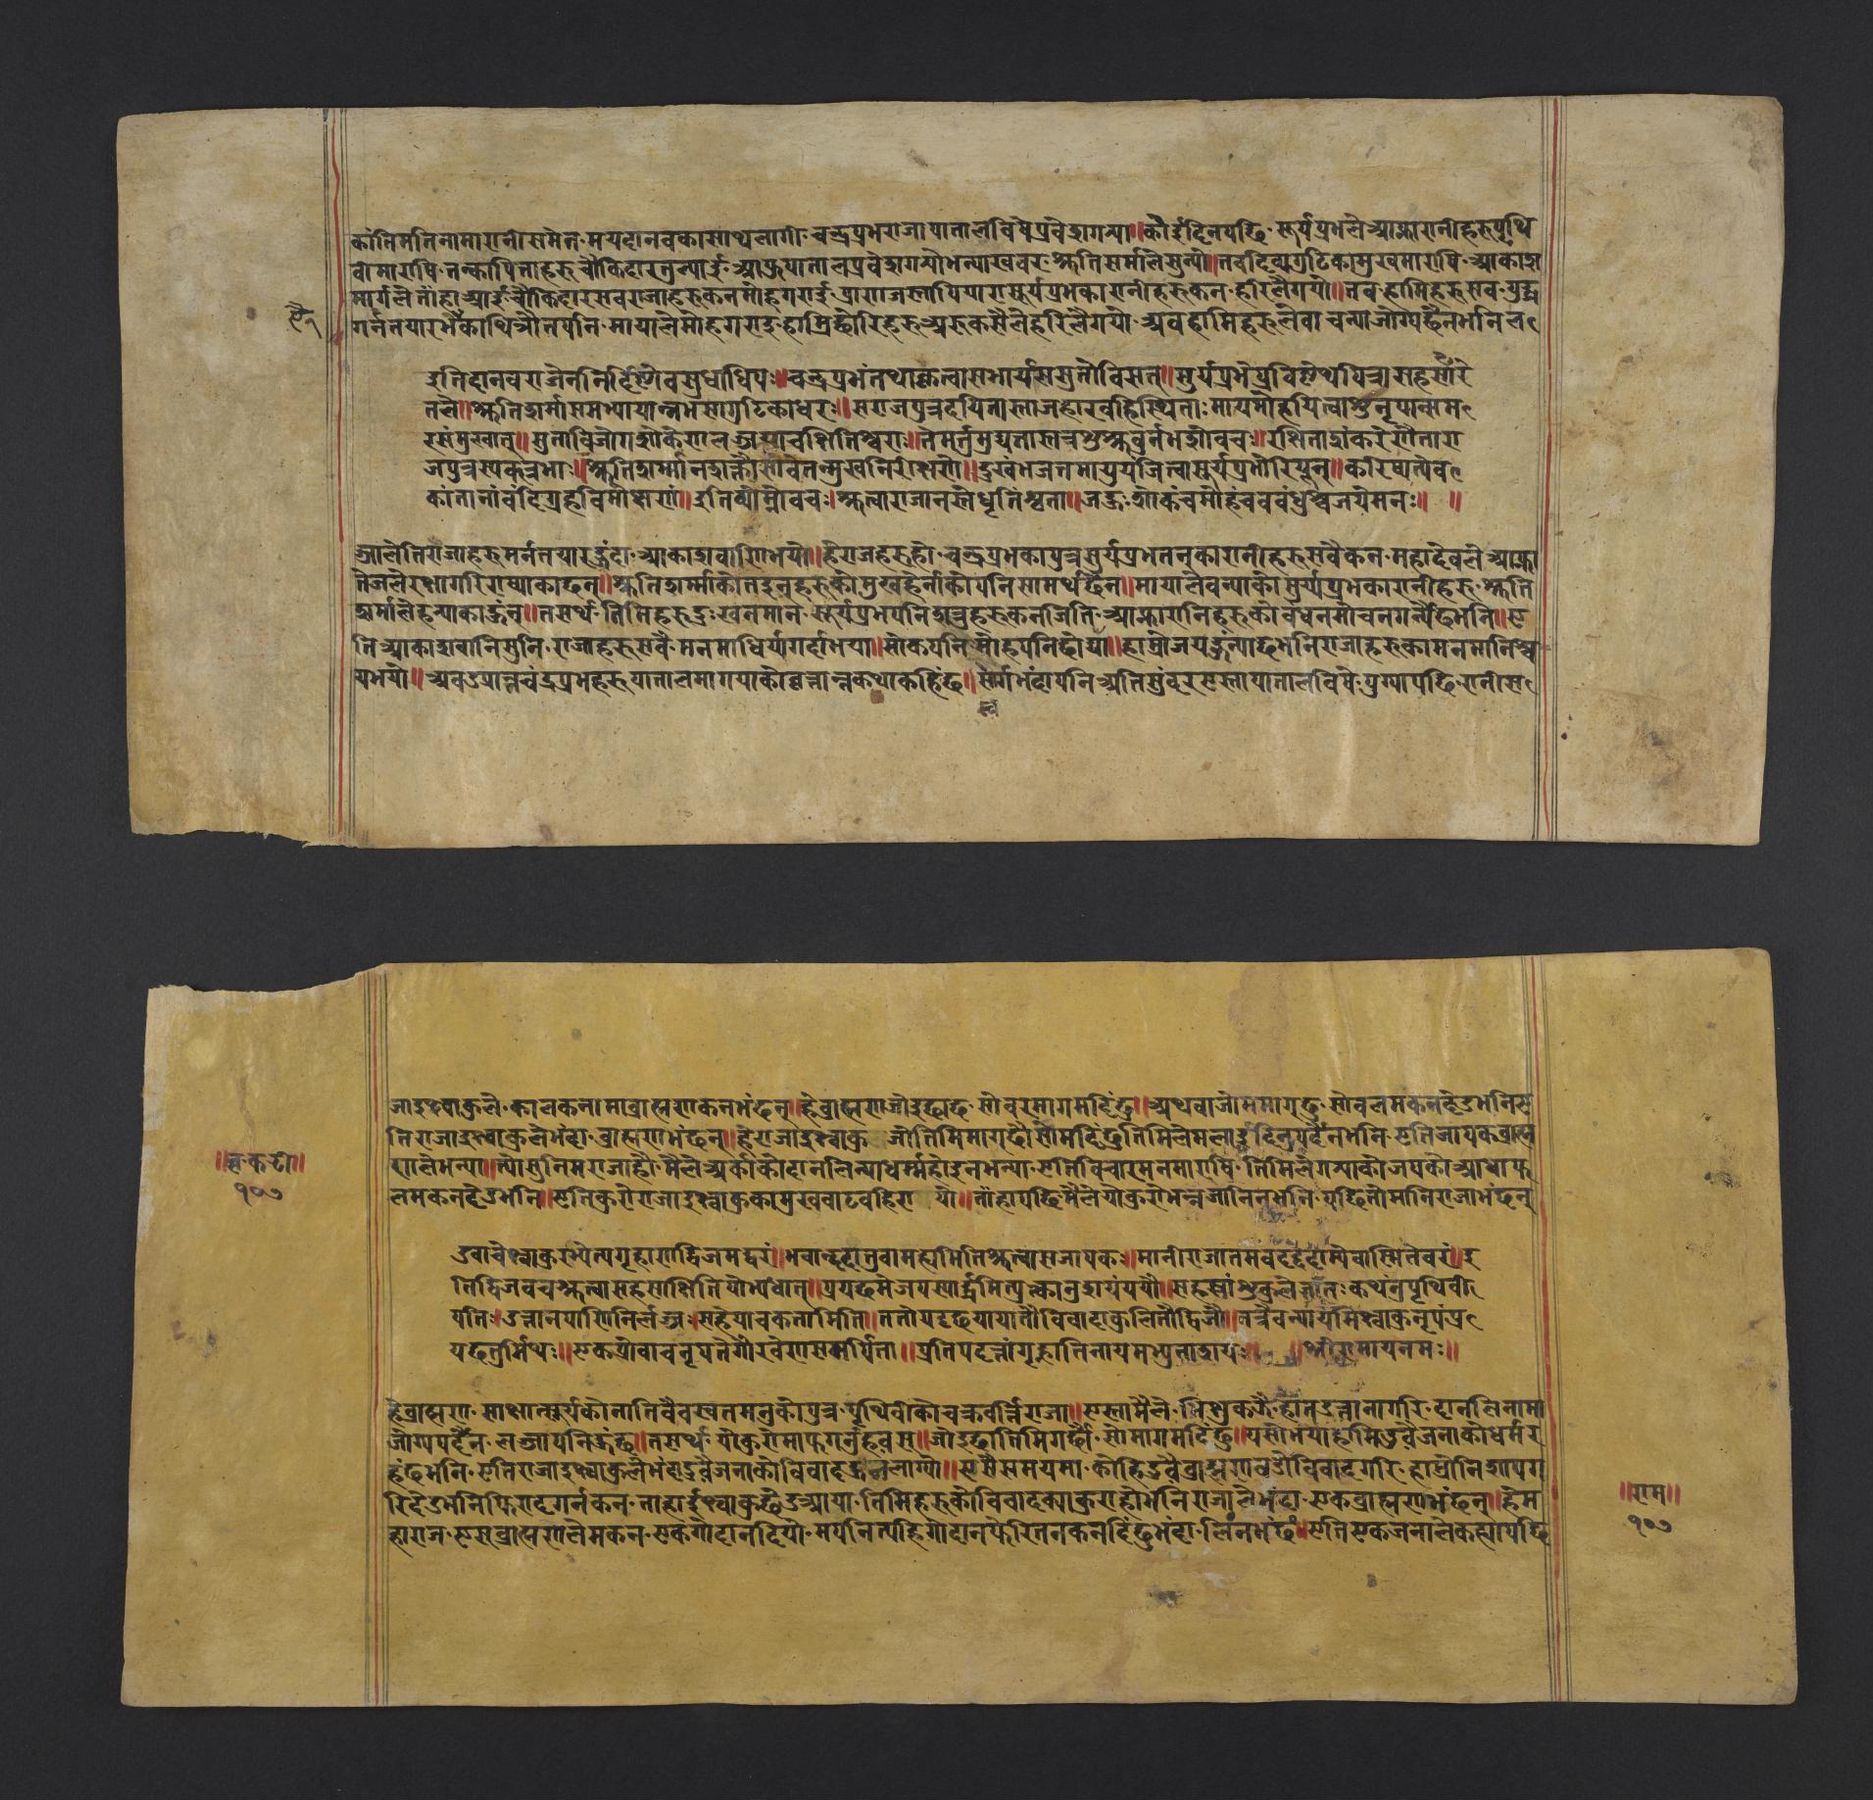 कांतिमतिनामारानीसमेत मयदानवकासाथलागी चन्द्रप्रभराजापातालविषेप्रवेशगन्या॥कोईदिनपछि सूर्यप्रभले आफ्नारानीहरुपृथि
वीमाराषि तन्कापिताहरु चौकिदारतुल्याई आफुपातालप्रवेशगयोभन्याखबर श्रुतिसर्माले सुन्यो॥तबदिव्यगुटिकामुखमाराषि आकाश
मार्गलेतांहाआईचौकिदारसबराजाहरुकनमोहगराई प्राणजस्तापियारासूर्यप्रभकारानीहरुकन हरिलैगयो॥तब हामिहरुसब युद्ध
गर्नतयारभैकाथिञौतपनि मायालेमोहगराइ हाम्रिछोरिहरु अरुकसैलेहरिलैगयो अबहामिहरुलेबाचन्याजोग्यछैनभनिल
इतिदानवराजेननिर्दिष्टोवसुधाधिपः॥चन्द्रप्रभंतथाकृत्वासभार्यससुतोविसत्॥सुर्यप्रभेप्रविष्टेथपित्रासहरसां
तले॥श्रुतिशर्मासमभ्यायान्नभसागुटिकाधरः॥सराजपुत्रदयितास्ताजहारबहिस्थिताः मायमोहयित्वाशुनृपान्सम
रसंमुखान्॥सुताविजोगशोकेनलज्जयाचक्षितिश्वराः॥तेमर्तुमुद्यतास्तत्रशुश्रुवुर्नभशोवचः॥रक्षिताशंकरेणैतारा
जपुत्रस्यकत्रभाः॥श्रुतिशर्म्मानशक्तौसौवैतन्मुखनिरीक्षणे॥दुखंभजतमायुयंजित्वासूर्यप्रभोरिपून्॥करिष्यत्येव
कांतानांबंदिग्रहविमोक्षणं॥इतिव्योम्नोवच श्रुत्वाराजानस्तेधृतिंश्रृता॥जह्रु शोकंचमोहंचबबंधुश्चजयेमनः॥ ॥
आलेतिराजाहरुमर्नतयारहुंदा आकाशवाणिभयो॥हेराजाहरुहो चन्द्रप्रभकापुत्रसुर्यप्रभतनकारानीहरुसबैकन महादेवले आफ्ना
तेजलेरक्षागरिराष्याकाछन्॥श्रुतिशर्म्माकोतइनहरुको मुखहेर्नाकोपनिसामर्थछैन॥मायालेबन्याको सूर्य्यप्रभकारानीहरु श्रुति
शर्मालेहन्याकाहुन॥तसर्थ तिमिहरुदुःखनमान सूर्यप्रभपनिशत्रुहरुकनजिति आफ्नारानिहरुको बंधनमोचनगन्यैछभनि॥ए
तिआकाशवानिसुनि राजाहरुसबै मनमाधिर्यगर्दाभया॥सोकपनि मोहपनिछोड्या॥हाम्रोजयहुंन्याछभनिराजाहरुकामनमानिश्च
यभयो॥अबउप्रान्तचंद्रप्रभहरुपातालमागयाकोवृत्तान्तकथाकहिंछु॥स्वर्गभंदापनि अतिसुंदरएस्तापातालविषे पुग्यापछि रानीस
र्ग
जाइक्ष्वाकुले कालकनामाब्राह्मणकनभंछन्॥हेब्राह्मणजोइछाछ सोबरमागमदिंछु॥अथवाजोममागुछु सोबलमकनदेउभनिए
तिराजाइक्ष्वाकुलेभंदा ब्राह्मणभंछन्॥हेराजाइक्ष्वाकु जोतिमिमागछौसोमदिंछुतिमिलेमलाईदिनुपर्दैनभनि एतिजापकब्राह्म
णलेभन्या॥त्योसुनिमराजाहौ मैलेअर्काकोदानलिन्याधर्म्महोइनभन्या एतिविचारमनमाराषि तिमिलेगन्याकोजपको आधाफ
लमकनदेउभनि॥एतिकुरोराजाइक्ष्वाकुकामुखबाटबहिरायो॥तांहापछि मैलेयोकुरोभन्नजानिनभनि पछितोमानिराजाभंछन्
उवाचेक्ष्वाकुरभ्येत्यगृहाणद्विजमद्वरं॥भवान्ददातुवामह्यमितिश्रुत्वासजापकः॥मानीराजातमवदद्ददाम्येवास्मितेबरं॥इ
तिद्विजवचश्रुत्वासहसाक्षितिपोभ्यधात्॥प्रयछमेजपस्यार्द्धमित्युक्त्वानुशयंययौ॥सहस्रांशुकुलेजातः कथंनुपृथिवी
पतिः॥उत्तानपाणिनिर्लज्जः॥सहेयाचकतामिति॥ततोयदृछयायातौविवादाकुलितौद्विजौ॥तत्रैवन्यायमिक्ष्वाकुनृपंप्र
यछतुर्मिथः॥एकप्रोवाचनृपतेगौरेवेणसमर्पिता॥प्रतिपदत्तांगृह्णातिनायमभ्युत्ताशयः॥ ॥श्रीरामायनमः॥
हेब्राह्मण साक्षात्सूर्यकोनातिवैवस्वतमनुकोपुत्र पृथिवीकोचक्रवर्त्तिराजा॥एस्तामैले भिक्षुकझै हातउत्तानागरि दानलिनामा
जोग्यपर्दैन लज्जापनिहुंछ॥तसर्थ योकुरोमाफगर्नुहवस्॥जोइछातिमिगर्छौ सोमागमदिंछु॥यसोभयाहामिदुवैजनाकोधर्मर
हंछभनि एतिराजाइक्ष्वाकुलेभंदादुवैजनाकोविवादहुनलाग्यो॥एसैसमयमा कोहिदुवैब्राह्मणबडोविवादगरि हाम्रोनिशापग
रिदेउभनिफिरादगर्नकन ताहाइक्ष्वाकुछेउआया तिमिहरुकोविवादक्याकुराहोभनिराजालेभंदा एकब्राह्मणभंछन्॥हेम
हाराज एसब्राह्मणलेमकन एकगोदानदियो मपनित्यहिगोदानफेरितनकनदिंछुभंदा लिंनभंछ॥एतिएकजनालेकह्यापछि
॥बृ॰क॰टी॥
१०७
॥राम॥
१०७